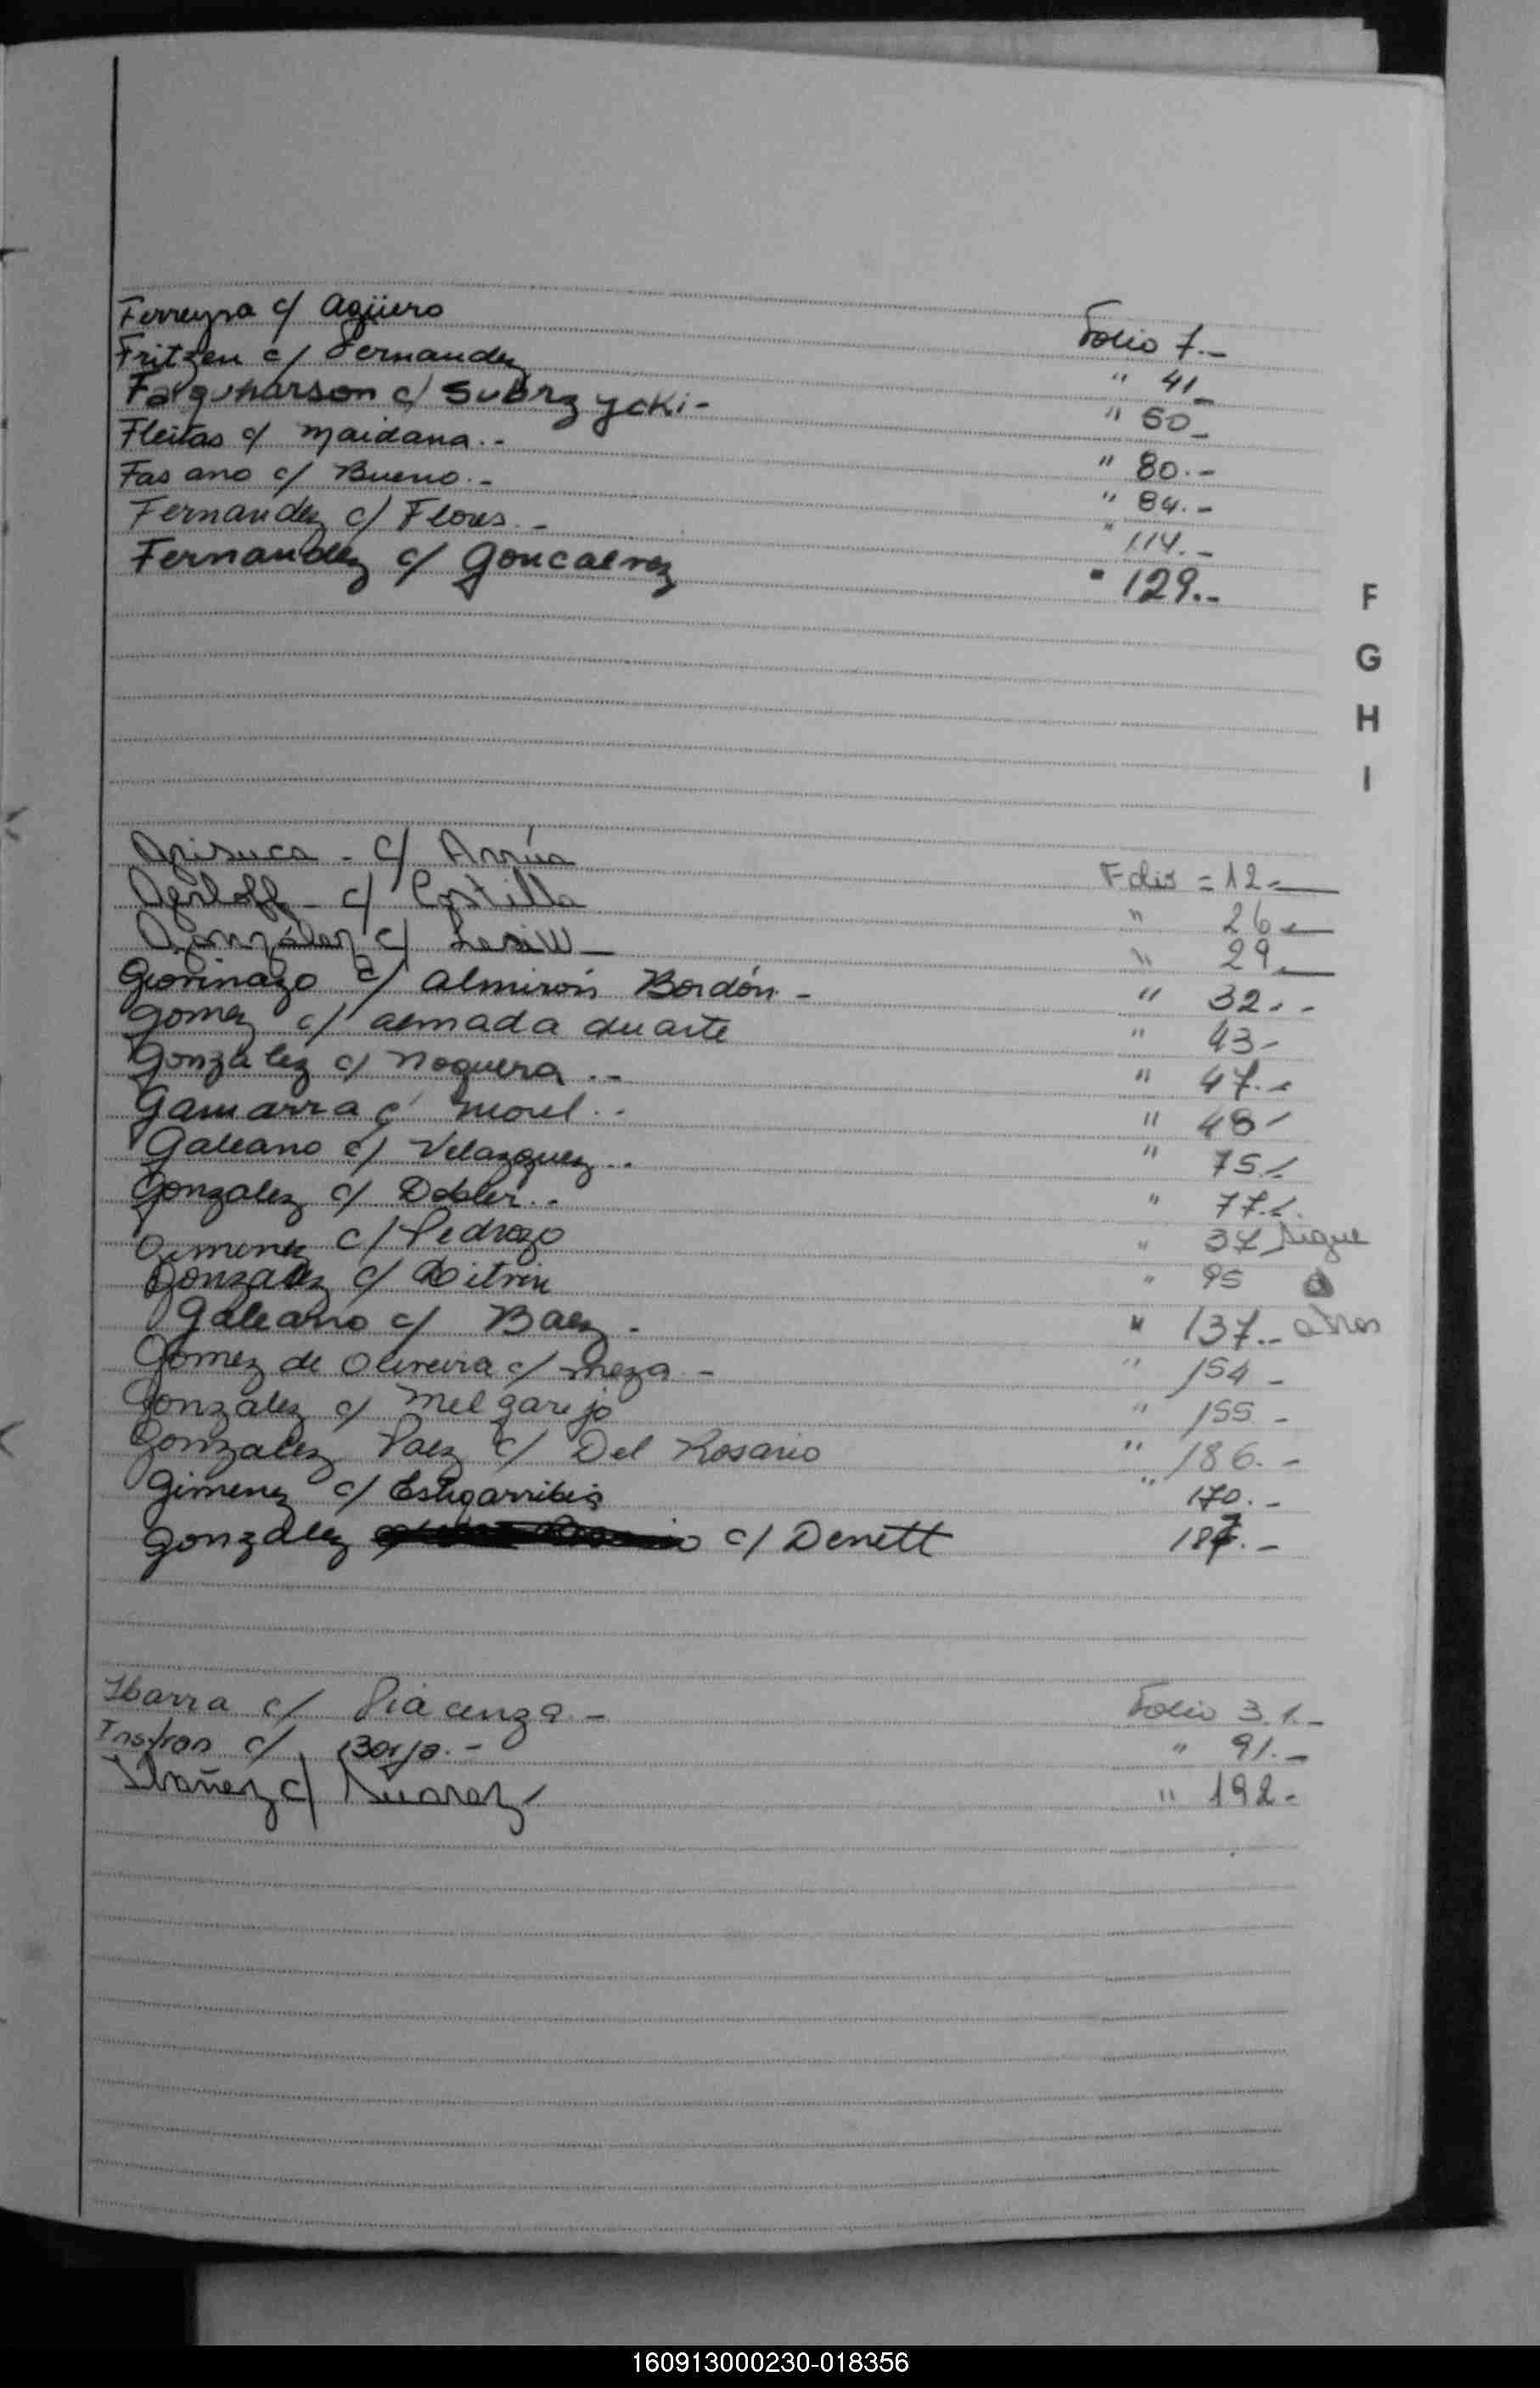 Ferreyra c/ Agüero Folio 7.-
Fritzen c/ Fernandez " 41-
Farquharson c/ Subrzycki- " 60-
Fleitas c/ Maidana.- " 80.-
Fasano c/ Bueno.- " 84.-
Fernandez c/ Flores.- " 114.-
Fernandez c/ Goncalvez " 129.-
F
G
H
I
c/ Arrúa Folio = 12.-
Gerloff - c/ Costilla " 26.-
González c/ " 29.-
Giorinazo c/ Almirón Bordón - " 32.-
Gomez c/ Almada Duarte " 43-
Gonzalez c/ Noguera.- " 47.-
Gamarra c/ Morel.- " 48-
Galeano c/ Velazquez.- " 75.-
Gonzalez c/ Dobler.- " 77.-
Gimenez c/ Pedrozo " 37 sigue
Gonzalez c/ Ditrin " 95 a
Galeano c/ Baez.- " 137.- atras
Gomez de Oliveira c/ Meza.- " 154-
Gonzalez c/ Melgarejo " 155-
Gonzalez Paez c/ Del Rosario " 186.-
Gimenez c/ Estigarribia " 170.-
Gonzalez c/ Denett 187.-
Ibarra c/ Piacenza.- Folio 31.-
Insfran c/ Borja.- " 91.-
Ibañez c/ Suarez- " 192-
160913000230-018356